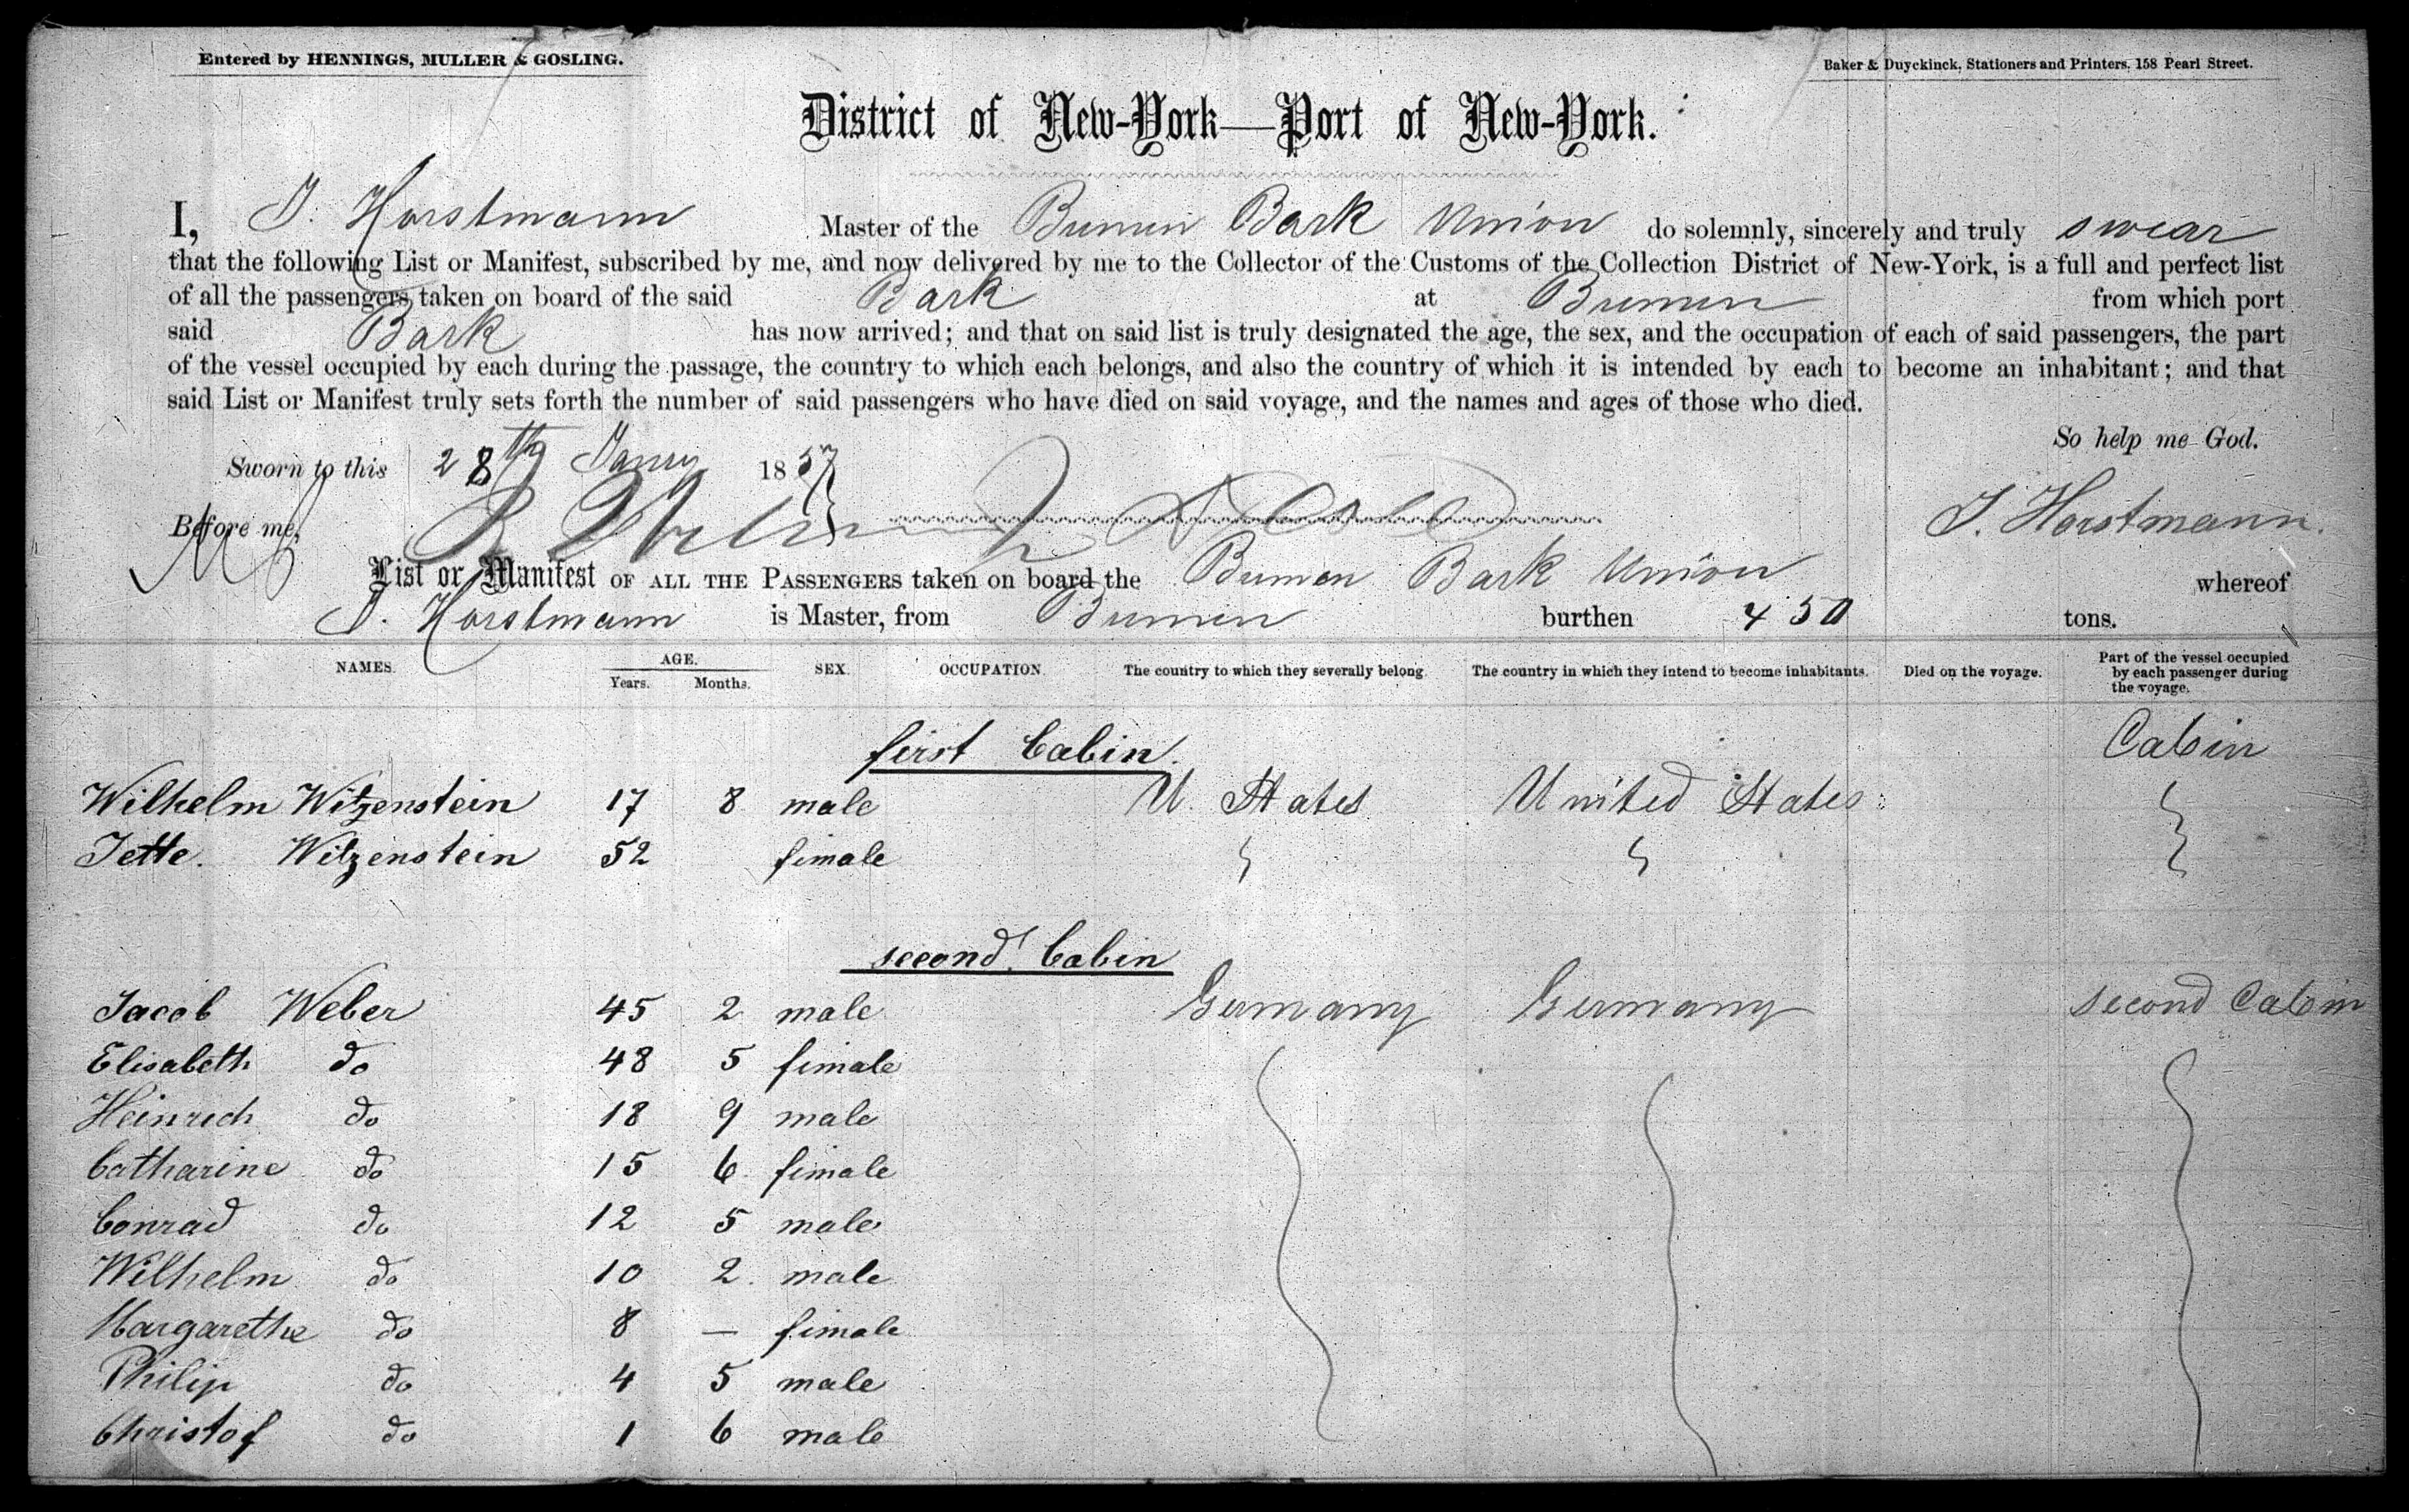 Entered by HENNINGS, MULLER & GOSLING.
Baker & Duyckinck, Stationers and Printers, 158 Pearl Street.
District of New-York—Port of New-York.
I, J. Horstmann Master of the Bremen Bark Union do solemnly, sincerely and truly swear
that the following List or Manifest, subscribed by me, and now delivered by me to the Collector of the Customs of the Collection District of New-York, is a full and perfect list
of all the passengers taken on board of the said Bark at Bremen from which port
said Bark has now arrived; and that on said list is truly designated the age, the sex, and the occupation of each of said passengers, the part
of the vessel occupied by each during the passage, the country to which each belongs, and also the country of which it is intended by each to become an inhabitant; and that
said List or Manifest truly sets forth the number of said passengers who have died on said voyage, and the names and ages of those who died.
So help me God.
Sworn to this 28th Janry 1857
Before me, J. Horstmann.
List or Manifest OF ALL THE PASSENGERS taken on board the Bremen Bark Union whereof
J. Horstmann is Master, from Bremen burthen 450 tons.
NAMES. AGE. Years. Months. SEX. OCCUPATION. The country to which they severally belong. The country in which they intend to become inhabitants. Died on the voyage. Part of the vessel occupied by each passenger during the voyage.
first Cabin. Cabin
Wilhelm Witzenstein 17 8 male U. States United States
Jette. Witzenstein 52 female
second Cabin
Jacob Weber 45 2 male Germany Germany second Cabin
Elisabeth do 48 5 female
Heinrich do 18 9 male
Catharine do 15 6 female
Conrad do 12 5 male
Wilhelm do 10 2 male
Margarethe do 8 — female
Philip do 4 5 male
Christof do 1 6 male